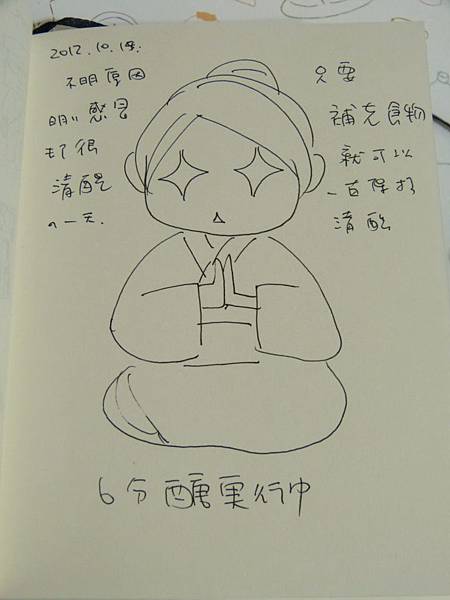 2012.10.14.
不明原因
明〃感冒
卻很
清醒
の一天.
只要
補充食物
就可以
一直保持
清醒
6分醣実行中